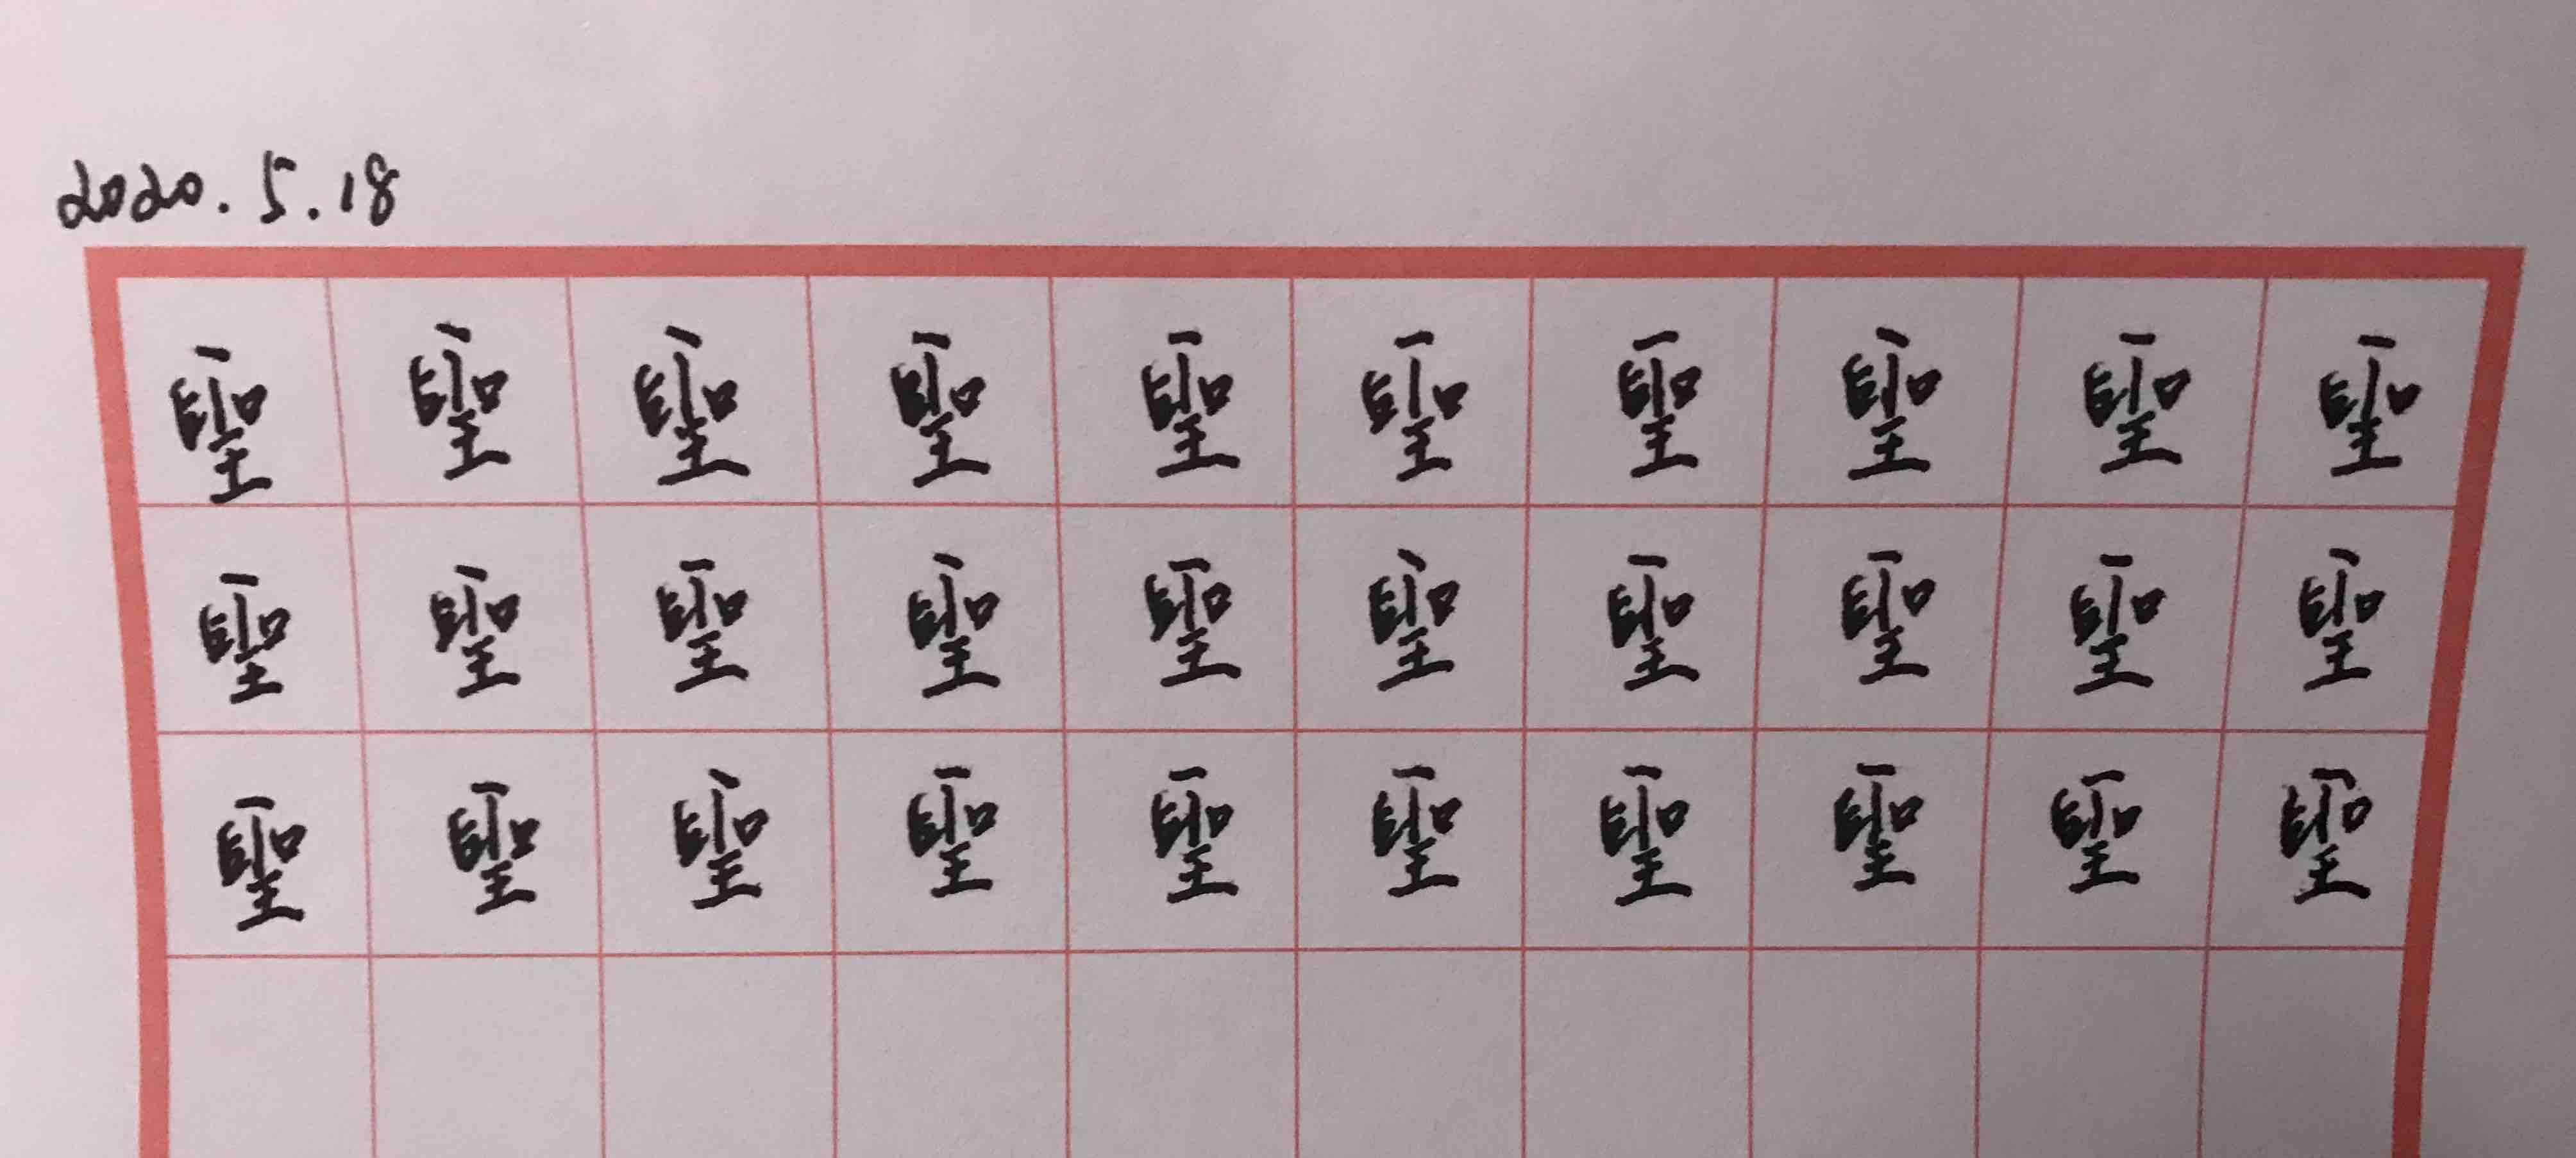 2020.5.18
聖聖聖聖聖聖聖聖聖聖
聖聖聖聖聖聖聖聖聖聖
聖聖聖聖聖聖聖聖聖聖